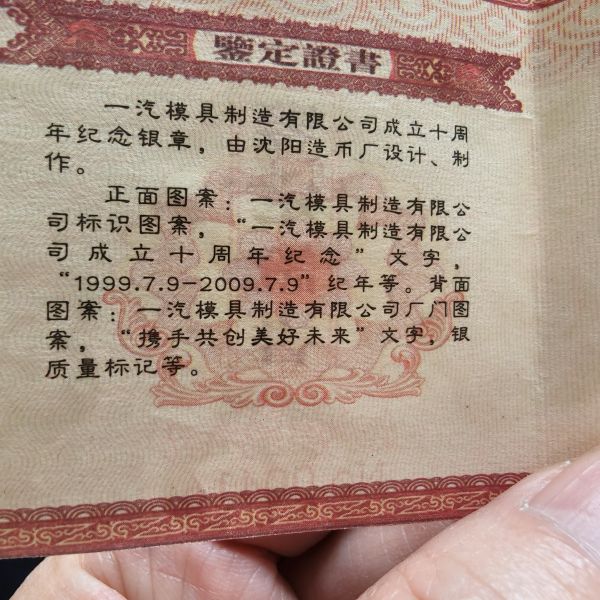 鑒定證書
一汽模具制造有限公司成立十周
年纪念银章，由沈阳造币厂设计、制
作。
正面图案：一汽模具制造有限公
司标识图案，“一汽模具制造有限公
司成立十周年纪念”文字，
“1999.7.9-2009.7.9”纪年等。背面
图案：一汽模具制造有限公司厂门图
案，“携手共创美好未来”文字，银
质量标记等。